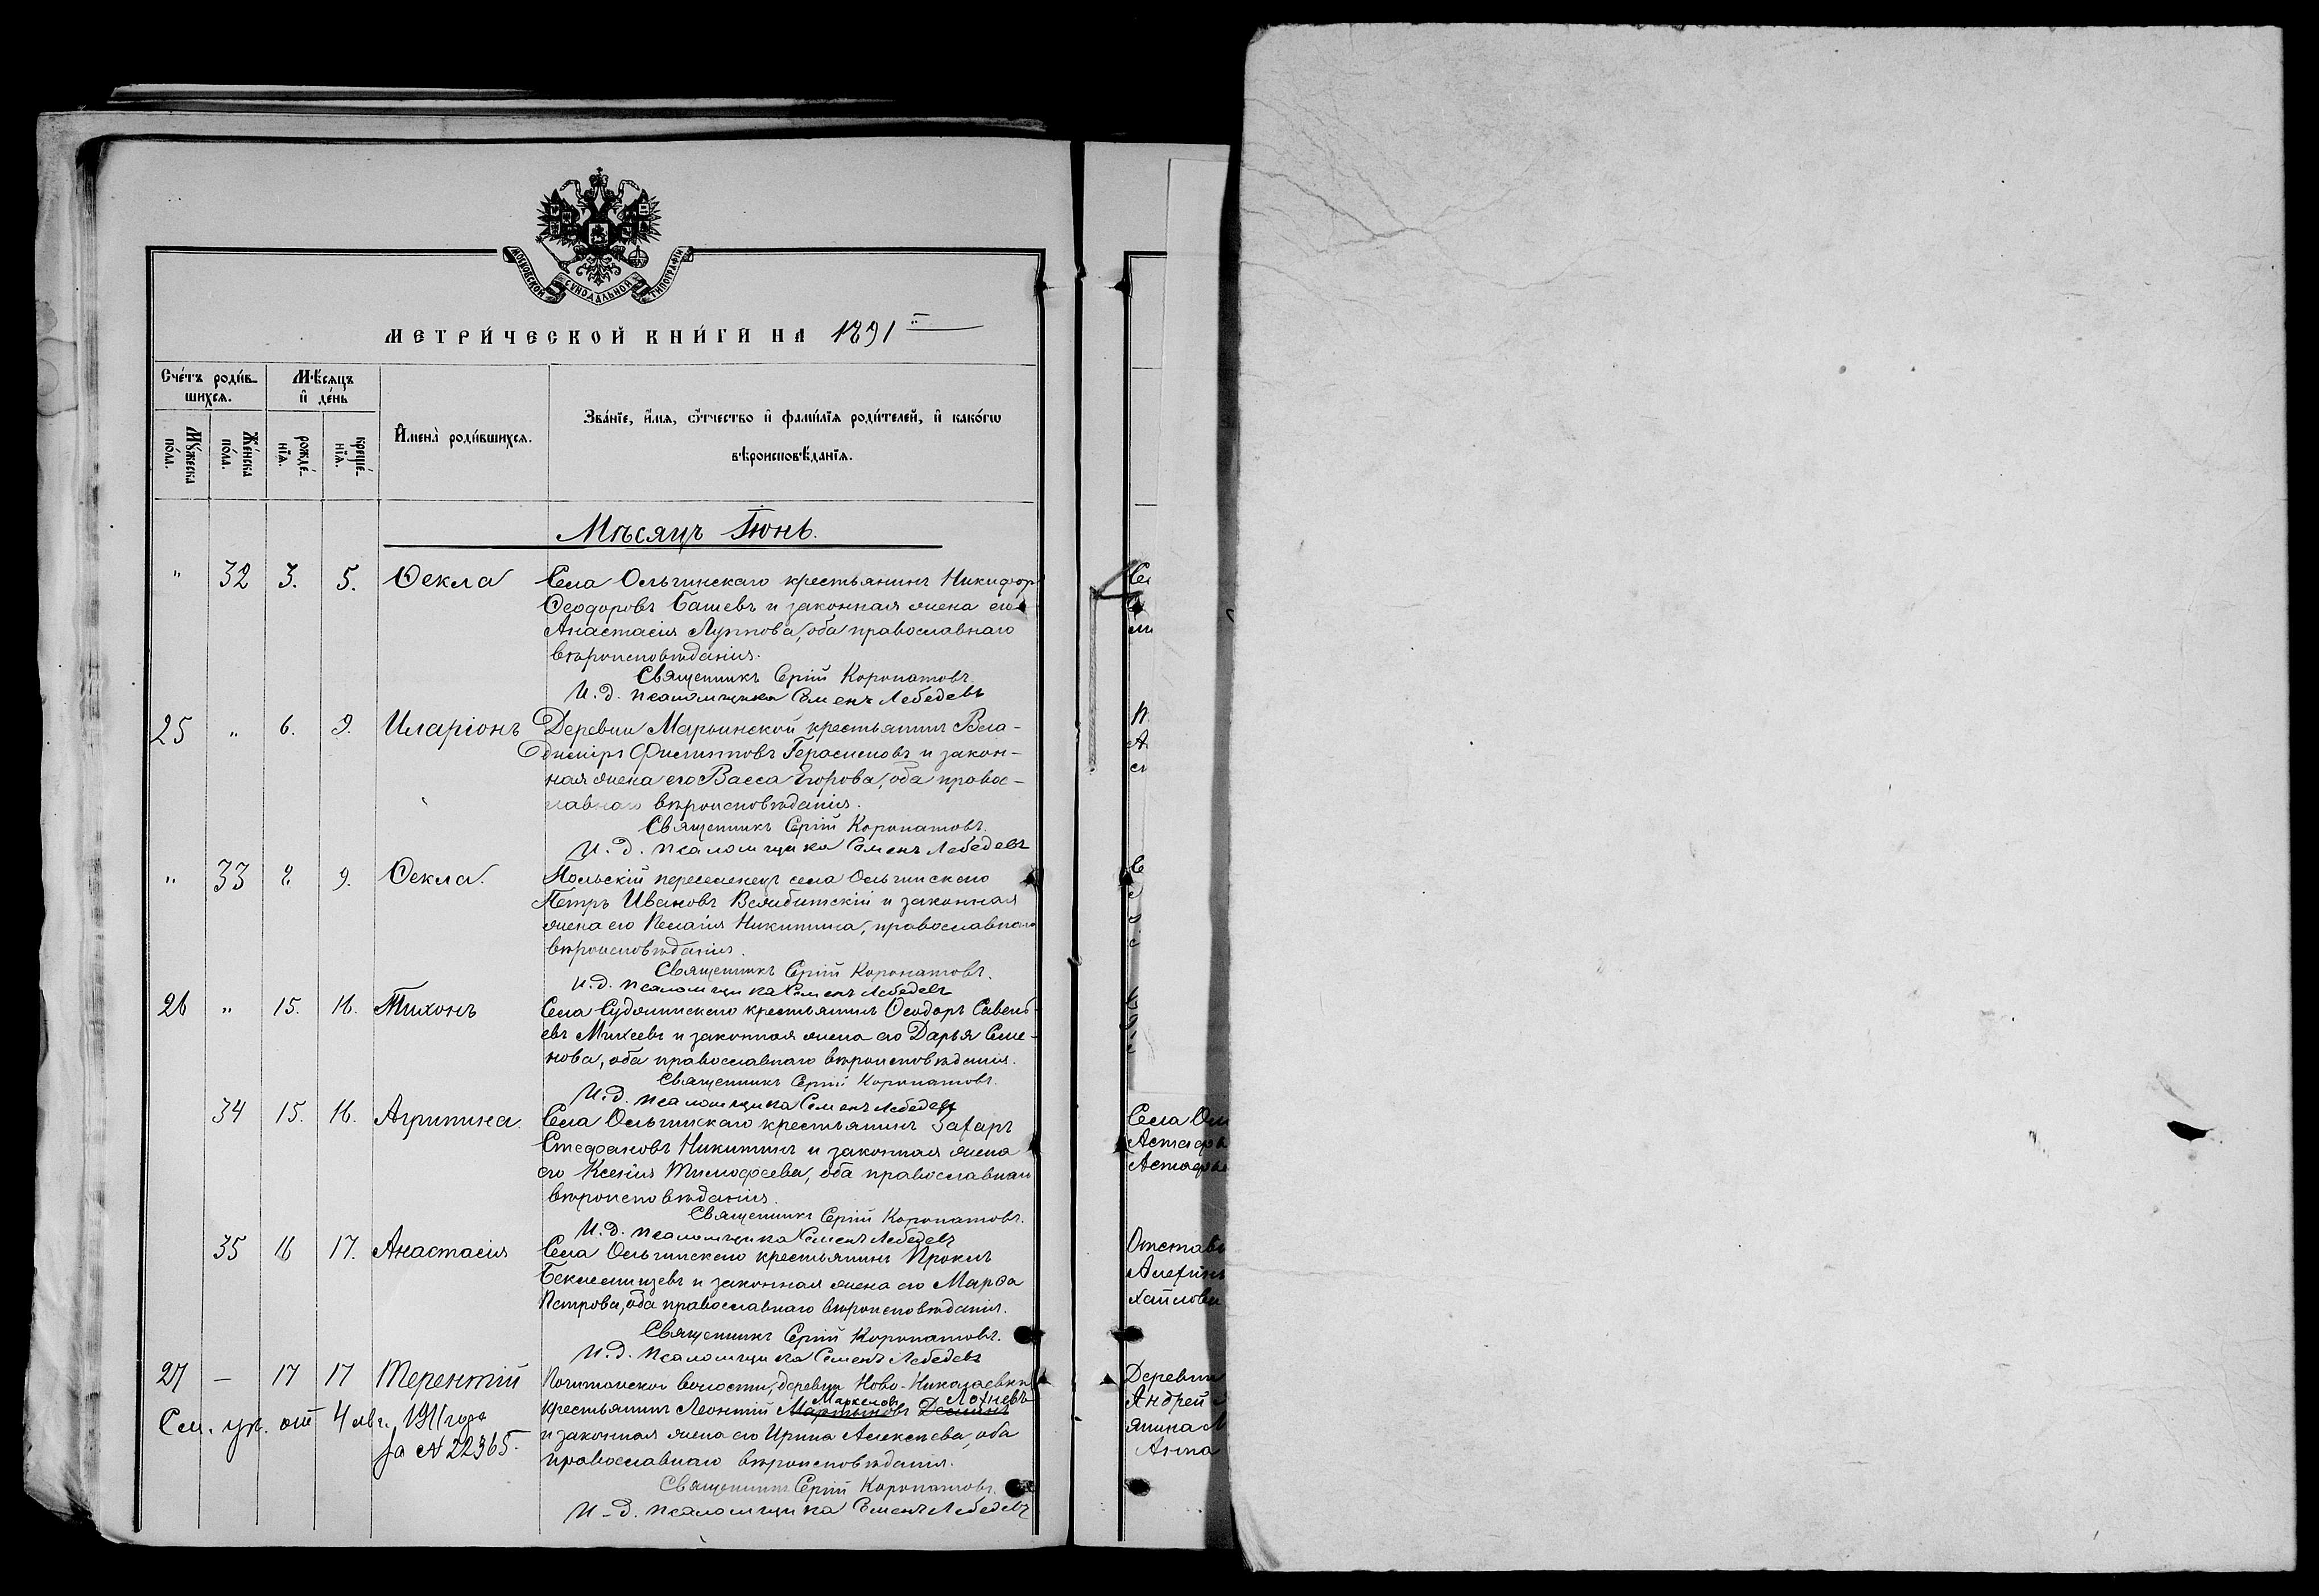 МОСКОВСКОЙ СѴНОДАЛЬНОЙ ТИПОГРАФІИ
МЕТРИ́ЧЕСКОЙ КНИ́ГИ НА 1891
Сче́тъ роди́в-
шихсѧ.
Мꙋ́жеска
по́ла.
Же́нска
по́ла.
Мѣ́сѧцъ
и҆ де́нь
рожде́-
нїѧ.
креще́-
нїѧ.
И҆мена̀ роди́вшихсѧ.
Зва́нїе, и҆́мѧ, ѻ҆́тчество и҆ фами́лїѧ роди́телей, и҆ како́гѡ
вѣроисповѣ́данїѧ.
Мѣсяцъ Іюнь.
" 32 3. 5. Ѳекла Села Ольгинскаго крестьянинъ Никифоръ
Ѳеодоровъ Башевъ и законная жена его
Анастасія Луппова, оба православнаго
вѣроисповѣданія.
Священникъ Сергій Коронатовъ.
И. д. псаломщика Семенъ Лебедевъ
25 " 6. 9. Иларіонъ Деревни Марьинской крестьянинъ Вла-
димiръ Филипповъ Герасимовъ и закон-
ная жена его Васса Егорова, оба правос-
лавнаго вѣроисповѣданія.
Священникъ Сергій Коронатовъ.
И. д. псаломщика Семенъ Лебедевъ
" 33 8. 9. Ѳекла. Польскій переселенецъ села Ольгинскаго
Петръ Ивановъ и законная
жена его Пелагія Никитина, православнаго
вѣроисповѣданія.
Священникъ Сергій Коронатовъ.
И. д. псаломщика Семенъ Лебедевъ
26 " 15. 16. Тихонъ Села крестьянинъ Ѳеодоръ Савель-
евъ Михеевъ и законная жена его Дарья Семе-
нова, оба православнаго вѣроисповѣданія.
Священникъ Сергій Коронатовъ.
И. д. псаломщика Семенъ Лебедевъ
34 15. 16. Агрипина. Села Ольгинскаго крестьянинъ Захаръ
Стефановъ Никитинъ и законная жена
его Ксенія Тимофеева, оба православнаго
вѣроисповѣданія.
Священникъ Сергій Коронатовъ.
И. д. псаломщика Семенъ Лебедевъ
35 16 17. Анастасія Села Ольгинскаго крестьянинъ Проклъ
Беклемищевъ и законная жена его Марѳа
Петрова, оба православнаго вѣроисповѣданія.
Священникъ Сергій Коронатовъ.
И. д. псаломщика Семенъ Лебедевъ
27 — 17 17 Терентій Почитанской волости, деревни Ново-Николаевки
Маркеловъ Логневъ
крестьянинъ Леонтій Мартыновъ Деминъ
и законная жена его Ирина Алексѣева, оба
православнаго вѣроисповѣданія.
См. ук. отъ 4 авг. 1911 года
за № 22365.
Священникъ Сергій Коронатовъ.
И. д. псаломщика Семенъ Лебедевъ
Села Оль
Астафь
Астафье
Отстав
Алехин
хайлова
Деревни
Андрей
янина М
Анна